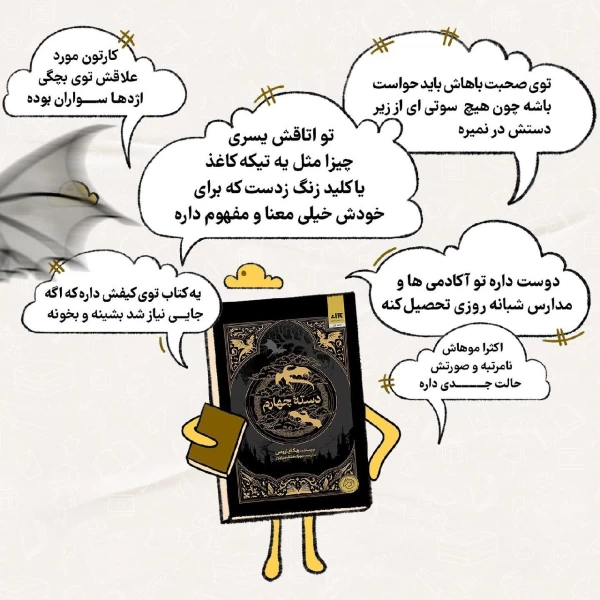 کارتون مورد
علاقش توی بچگی
اژدها سواران بوده
توی صحبت باهاش باید حواست
باشه چون هیچ سوتی ای از زیر
دستش در نمیره
تو اتاقش یسری
چیزا مثل یه تیکه کاغذ
یا کلید زنگ زدست که برای
خودش خیلی معنا و مفهوم داره
یه کتاب توی کیفش داره که اگه
جایی نیاز شد بشینه و بخونه
دوست داره تو آکادمی ها و
مدارس شبانه روزی تحصیل کنه
اکثرا موهاش
نامرتبه و صورتش
حالت جدی داره
دسته چهارم